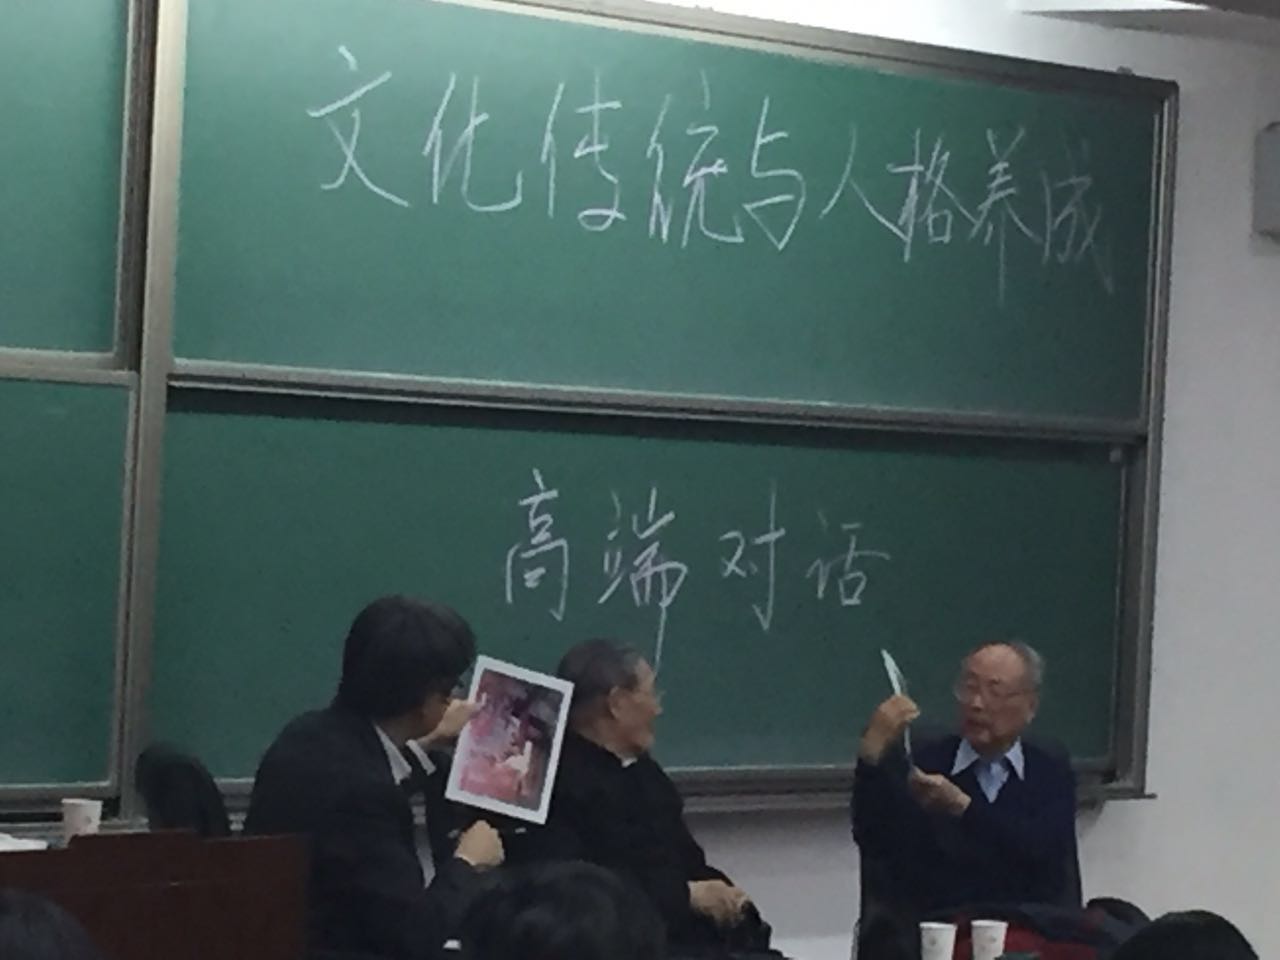 文化传统与人格养成
高端对话